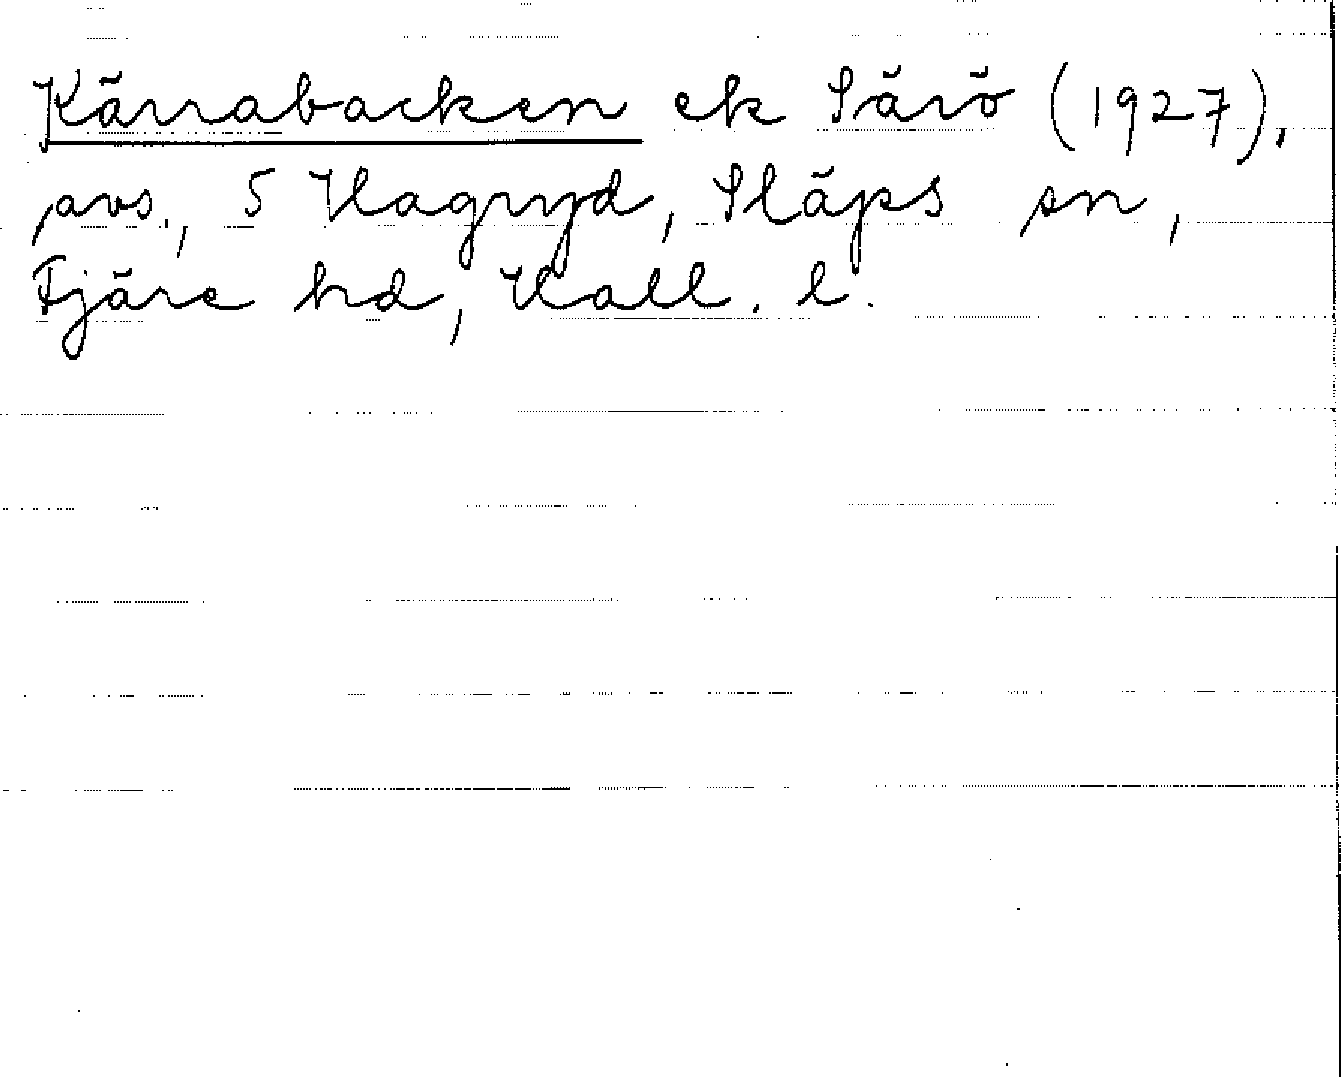 Kärrabacken ek Särö (1927),
avs., 5 Hagryd, Släps sn,
Fjäre hd, Hall. l.